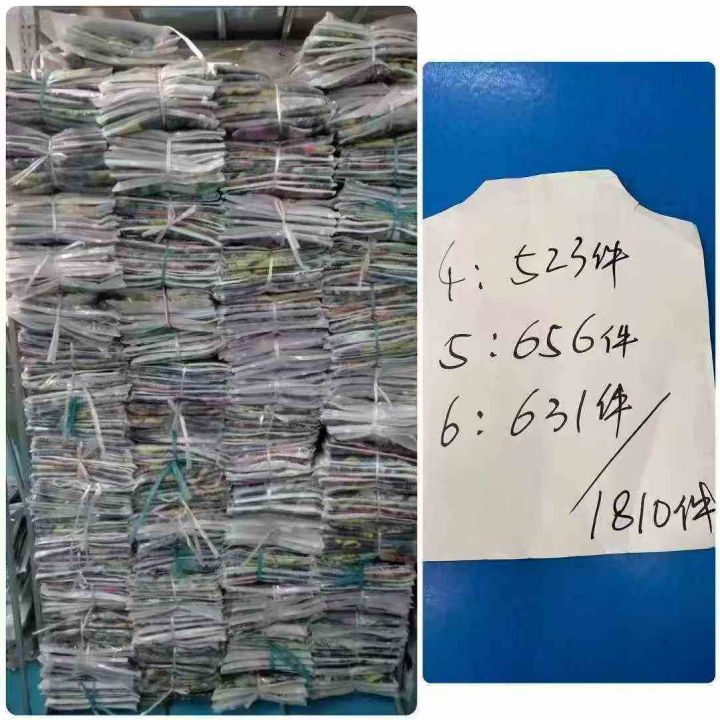 4:523件
5:656件
6:631件
1810件